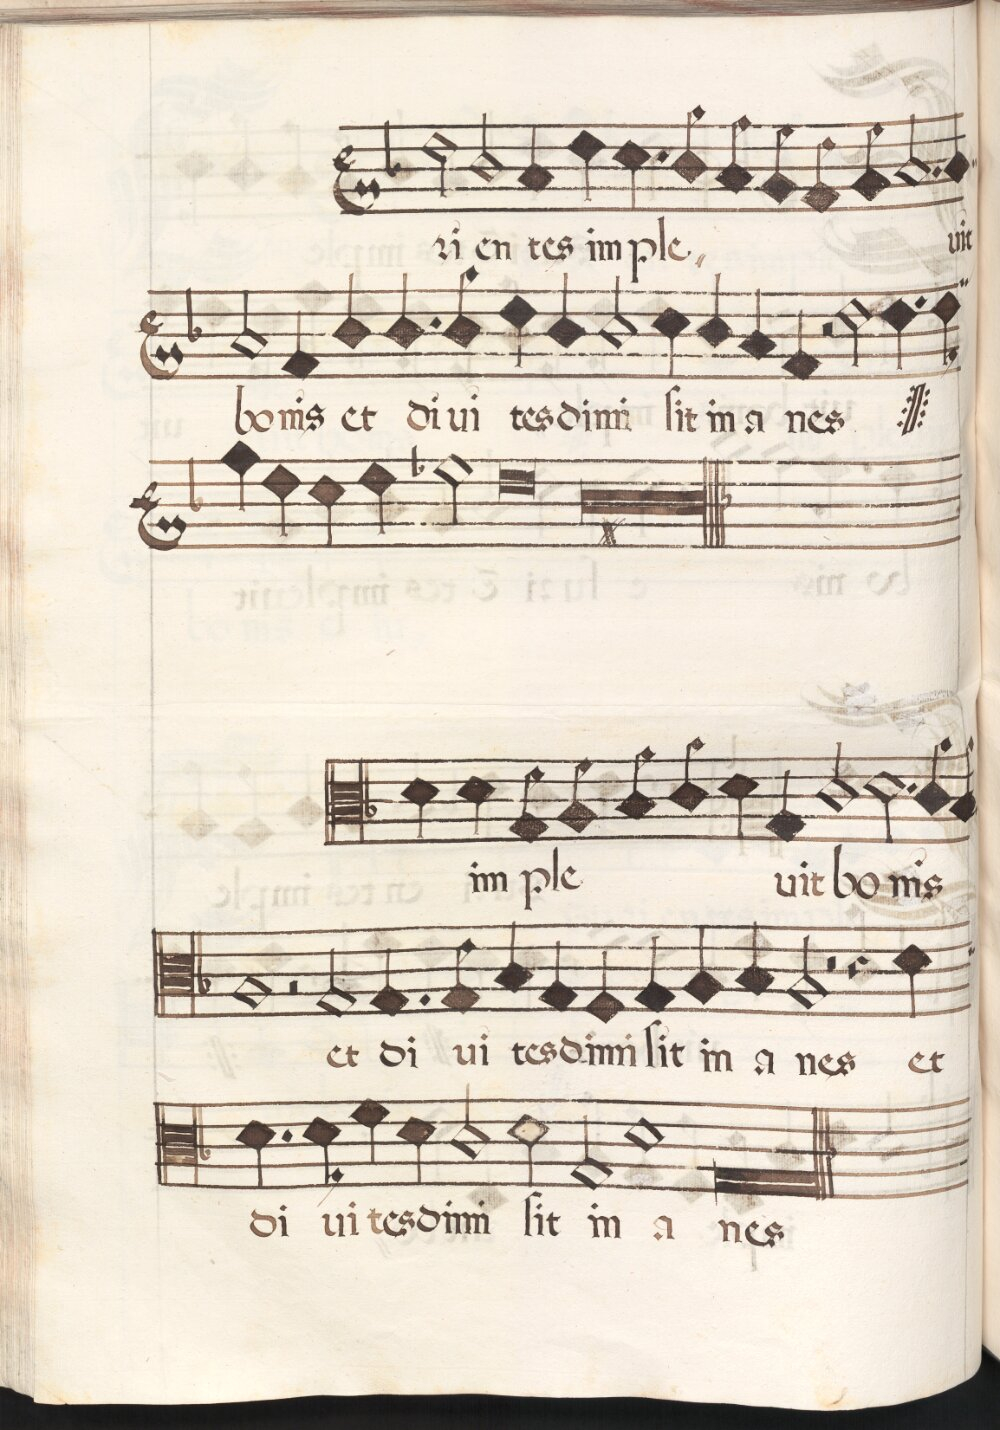 ri en tes im ple uit
bo nis et di ui tes dimi sit in a nes
im ple uit bo nis
et di ui tes dimi sit in a nes et
di ui tes dimi sit in a nes